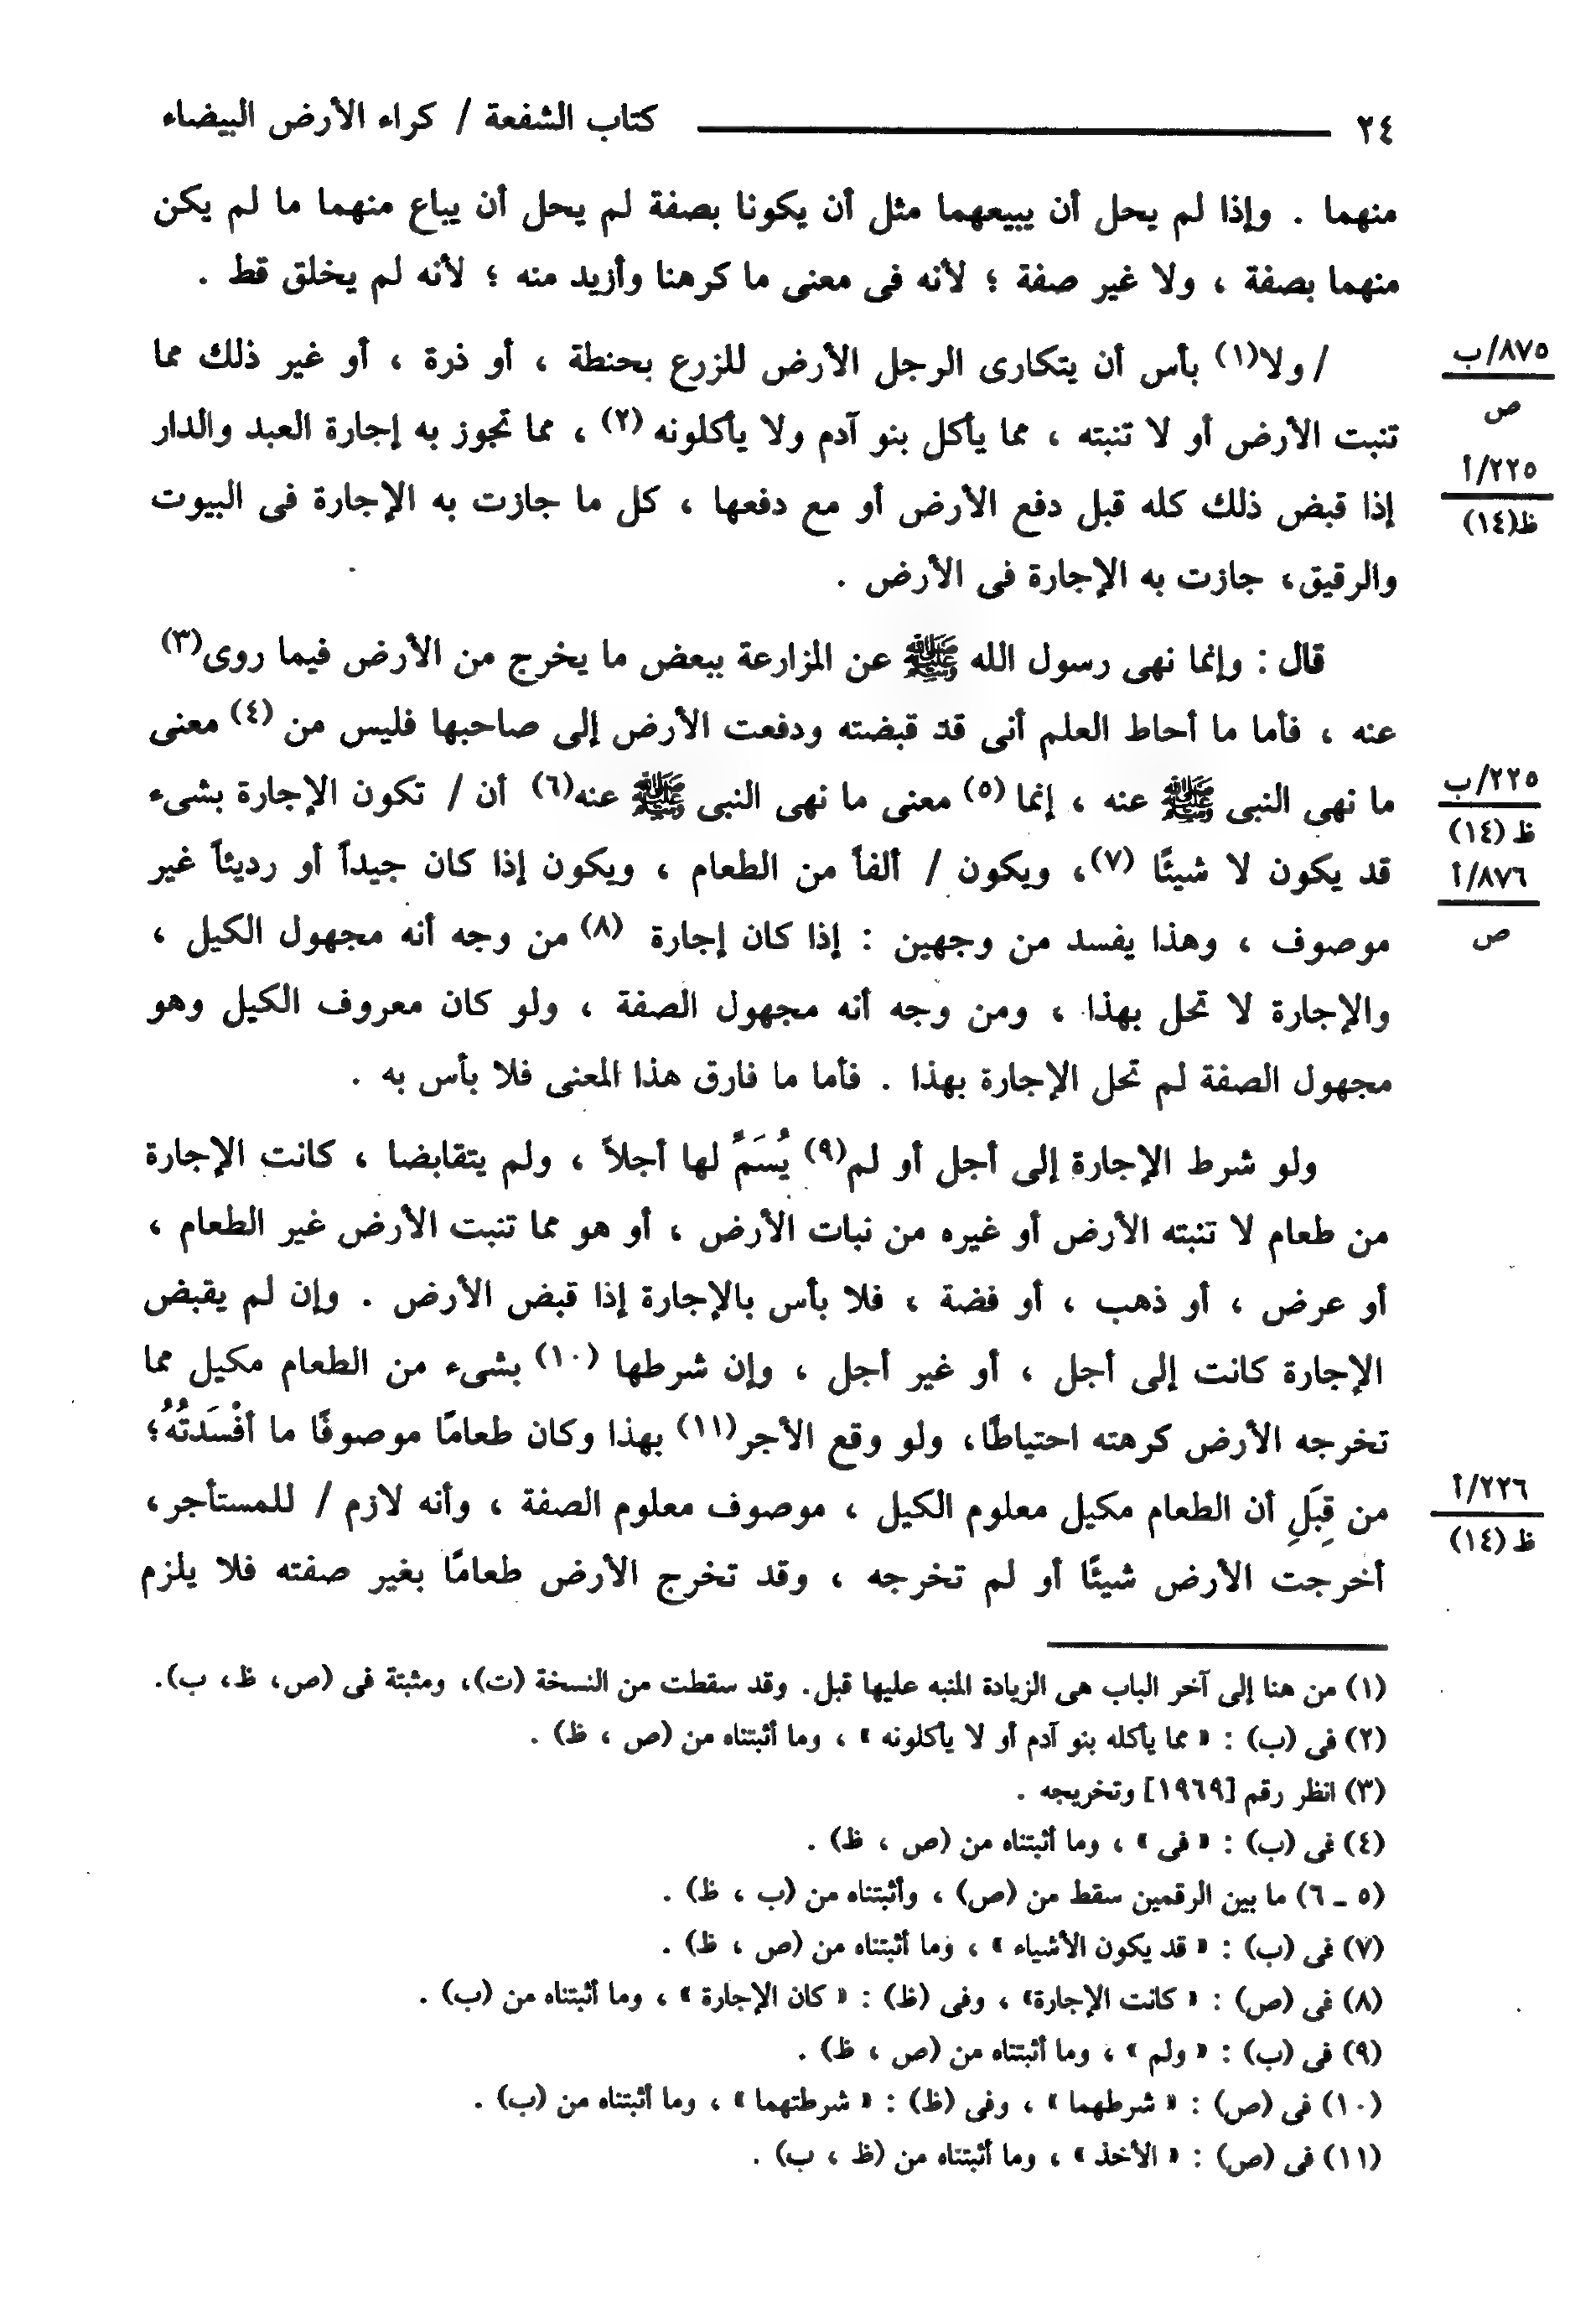 ٢٤ كتاب الشفعة / كراء الأرض البيضاء
منهما . وإذا لم يحل أن يبيعهما مثل أن يكونا بصفة لم يحل أن يباع منهما ما لم يكن
منهما بصفة ، ولا غير صفة ؛ لأنه فى معنى ما كرهنا وأزيد منه ؛ لأنه لم يخلق قط .
/ ولا(١) بأس أن يتكارى الرجل الأرض للزرع بحنطة ، أو ذرة ، أو غير ذلك مما
٨٧٥/ب
ص
تنبت الأرض أو لا تنبته ، مما يأكل بنو آدم ولا يأكلونه (٢) ، مما تجوز به إجارة العبد والدار
٢٢٥/أ
ظ(١٤)
إذا قبض ذلك كله قبل دفع الأرض أو مع دفعها ، كل ما جازت به الإجارة فى البيوت
والرقيق، جازت به الإجارة فى الأرض .
قال : وإنما نهى رسول الله ﷺ عن المزارعة ببعض ما يخرج من الأرض فيما روى(٣)
عنه ، فأما ما أحاط العلم أنى قد قبضته ودفعت الأرض إلى صاحبها فليس من (٤) معنى
ما نهى النبى ﷺ عنه ، إنما (٥) معنى ما نهى النبى ﷺ عنه(٦) أن / تكون الإجارة بشىء
٢٢٥/ب
ظ (١٤)
قد يكون لا شيئًا (٧)، ويكون / ألفاً من الطعام ، ويكون إذا كان جيداً أو رديئاً غير
٨٧٦/أ
ص
موصوف ، وهذا يفسد من وجهين : إذا كان إجارة (٨) من وجه أنه مجهول الكيل ،
والإجارة لا تحل بهذا ، ومن وجه أنه مجهول الصفة ، ولو كان معروف الكيل وهو
مجهول الصفة لم تحل الإجارة بهذا . فأما ما فارق هذا المعنى فلا بأس به .
ولو شرط الإجارة إلى أجل أو لم(٩) يُسَمِّ لها أجلاً ، ولم يتقابضا ، كانت الإجارة
من طعام لا تنبته الأرض أو غيره من نبات الأرض ، أو هو مما تنبت الأرض غير الطعام ،
أو عرض ، أو ذهب ، أو فضة ، فلا بأس بالإجارة إذا قبض الأرض . وإن لم يقبض
الإجارة كانت إلى أجل ، أو غير أجل ، وإن شرطها (١٠) بشىء من الطعام مكيل مما
تخرجه الأرض كرهته احتياطًا، ولو وقع الأجر(١١) بهذا وكان طعامًا موصوفًا ما أفْسَدتُهُ؛
من قِبَلِ أن الطعام مكيل معلوم الكيل ، موصوف معلوم الصفة ، وأنه لازم / للمستأجر،
٢٢٦/أ
ظ (١٤)
أخرجت الأرض شيئًا أو لم تخرجه ، وقد تخرج الأرض طعامًا بغير صفته فلا يلزم
(١) من هنا إلى آخر الباب هى الزيادة المنبه عليها قبل. وقد سقطت من النسخة (ت)، ومثبتة فى (ص، ظ، ب).
(٢) فى (ب) : « مما يأكله بنو آدم أو لا يأكلونه » ، وما أثبتناه من (ص ، ظ) .
(٣) انظر رقم [١٩٦٩] وتخريجه .
(٤) فى (ب) : « فى » ، وما أثبتناه من (ص ، ظ) .
(٥ ــ ٦) ما بين الرقمين سقط من (ص) ، وأثبتناه من (ب ، ظ) .
(٧) فى (ب) : « قد يكون الأشياء » ، وما أثبتناه من (ص ، ظ) .
(٨) فى (ص) : « كانت الإجارة» ، وفى (ظ) : « كان الإجارة » ، وما أثبتناه من (ب) .
(٩) فى (ب) : « ولم » ، وما أثبتناه من (ص ، ظ) .
(١٠) فى (ص) : « شرطهما » ، وفى (ظ) : « شرطتهما » ، وما أثبتناه من (ب) .
(١١) فى (ص) : « الأخذ » ، وما أثبتناه من (ظ ، ب) .